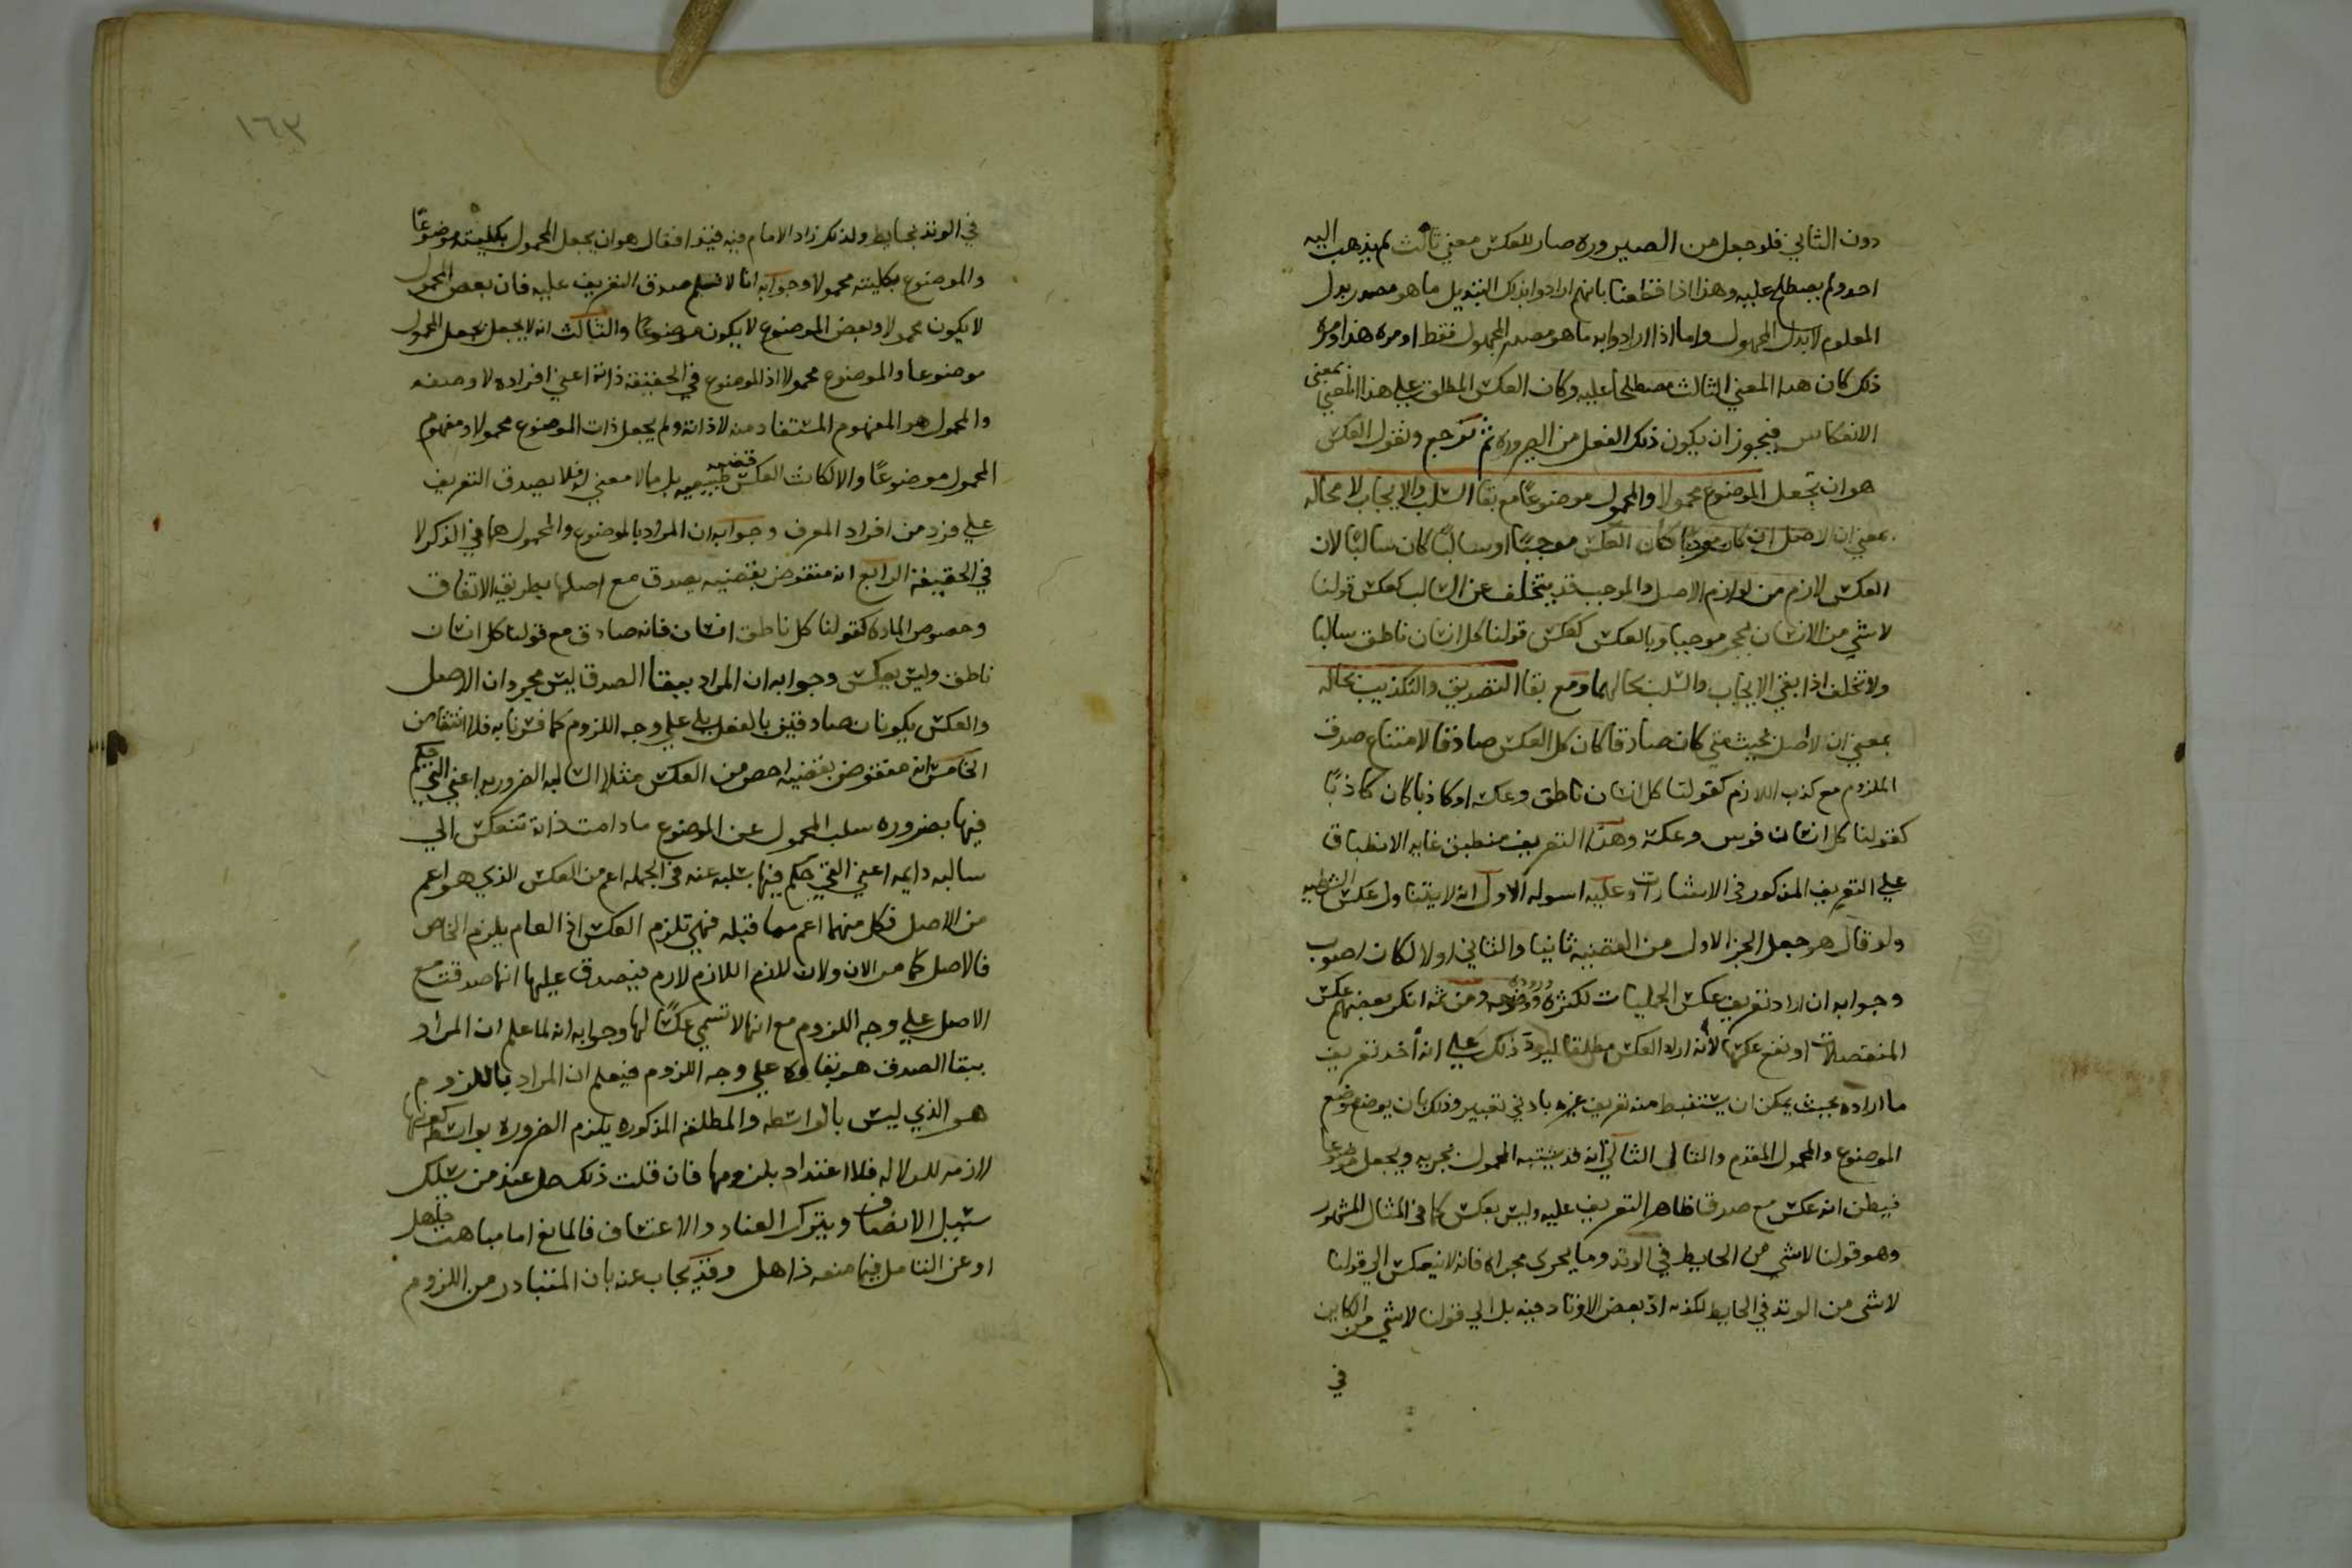 دون الثاني فلو جعل من الصيروره صار للعكس معني ثالث لم يذهب اليه
احد ولم يصطلح عليه وهذا اذا قطعنا بانهم ارادوا بذلك التبديل ما هو مصدر بدل
المعلوم لا بدل المجهول واما اذا ارادوا به ما هو مصدر المجهول فقط او مره هذا ومره
ذلك كان هذا المعني الثالث مصطلحا عليه وكان العكس المطلق علي هذا المعني بمعني
الانعكاس فيجوز ان يكون ذلك الفعل من الصيروره ثم نرجع ونقول العكس
هو ان يجعل الموضوع محمولا والمحمول موضوعًا مع بقا السلب والايجاب لا محاله
بمعني ان الاصل ان كان موجبًا كان العكس موجبًا او سالبًا كان سالبًا لان
العكس لازم من لوازم الاصل والموجب قد يتخلف عن السالب كعكس قولنا
لا شي من الانسان بحجر موجبا وبالعكس كعكس قولنا كل انسان ناطق سالبا
ولا تخلف اذا بقي الايجاب والسلب بحالهما ومع بقا التصديق والتكذيب بحاله
بمعني ان الاصل بحيث متي كان صادقا كان كل العكس صادقا لامتناع صدق
الملزوم مع كذب اللازم كقولنا كل انسان ناطق وعكسه او كاذبا كان كاذبًا
كقولنا كل انسان فرس وعكسه وهذا التعريف منطبق غايه الانطباق
علي التعريف المذكور في الاشارات وعليه اسوله الاول انه لا يتناول عكس الشرطيه
ولو قال هو جعل الجز الاول من القضيه ثانيا والثاني اولا لكان اصوب
وجوابه ان اراد تعريف عكس الحمليات لكثره وروده ووضوحه ومن ثمه انكر بعضهم عكس
المنفصلات او نفع عكسها لا انه اراد العكس مطلقا ذلك علي انه اخذ تعريف
ما اراده بحيث يمكن ان يستنبط منه تعريف غيره بادني تغيير وذلك بان يوضع موضع
الموضوع والمحمول المقدم والتالي الثاني انه قد يشتبه المحمول بجزيه ويجعل موضوعا
فيظن انه عكس مع صدق ظاهر التعريف عليه وليس بعكس كما في المثال المشهور
وهو قولنا لا شي من الحايط في الوتد وما يجري مجراه فانه لا ينعكس الي قولنا
لا شي من الوتد في الحايط لكذبه اذ بعض الاوتاد فيه بل الي قولنا لا شي من الكاين
في
١٦٣
في الوتد بحايط ولذلك زاد الامام فيه قيدا فقال هو ان يجعل المحمول بكليته موضوعًا
والموضوع بكليته محمولا وجوابه انا لا نسلم صدق التعريف عليه فان بعض المحمول
لا يكون محمولا وبعض الموضوع لا يكون موضوعًا والثالث انه لا يجعل المحمول
موضوعا والموضوع محمولا اذ الموضوع في الحقيقة ذاته اعني افراده لا وصفه
والمحمول هو المفهوم المستفاد منه لا ذاته ولم يجعل ذات الموضوع محمولا ومفهوم
المحمول موضوعًا والا لكانت العكس قضيه طبيعيه بل مالا معني له فلا يصدق التعريف
علي فرد من افراد المعرف وجوابه ان المراد بالموضوع والمحمول هما في الذكر لا
في الحقيقة الرابع انه منقوض بقضيه يصدق مع اصلها بطريق الاتفاق
وخصوص الماده كقولنا كل ناطق انسان فانه صادق مع قولنا كل انسان
ناطق وليس بعكس وجوابه ان المراد ببقا الصدق ليس مجرد ان الاصل
والعكس يكونان صادقين بالفعل بل علي وجه اللزوم كما فسرنا به فلا انتقاض
الخامس انه منقوض بقضيه اخص من العكس مثلا السالبه الضروريه اعني التي حكم
فيها بضروره سلب المحمول عن الموضوع ما دامت ذاته تنعكس الي
سالبه دايمه اعني التي حكم فيها بسلبه عنه في الجمله اعم من العكس الذي هو اعم
من الاصل فكل منهما اعم مما قبله فهي تلزم العكس اذ العام يلزم الخاص
فالاصل كما مر الان ولان لازم اللازم لازم فيصدق عليها انها صدقت مع
الاصل علي وجه اللزوم مع انها لا تسمي عكسًا لها وجوابه انه لما علم ان المراد
ببقا الصدق هو بقاوه علي وجه اللزوم فيعلم ان المراد باللزوم
هو الذي ليس بالواسطه والمطلقه المذكوره يلزم الضروره بواسطه كونها
لازمه للدلاله فلا اعتداد بلزومها فان قلت ذلك حل عند من سلك
سبيل الانصاف ويترك العناد والاعتساف فالمانع اما مباهت جاهل
او عن التامل فيما منعه ذاهل وقد يجاب عنه بان المتبادر من اللزوم